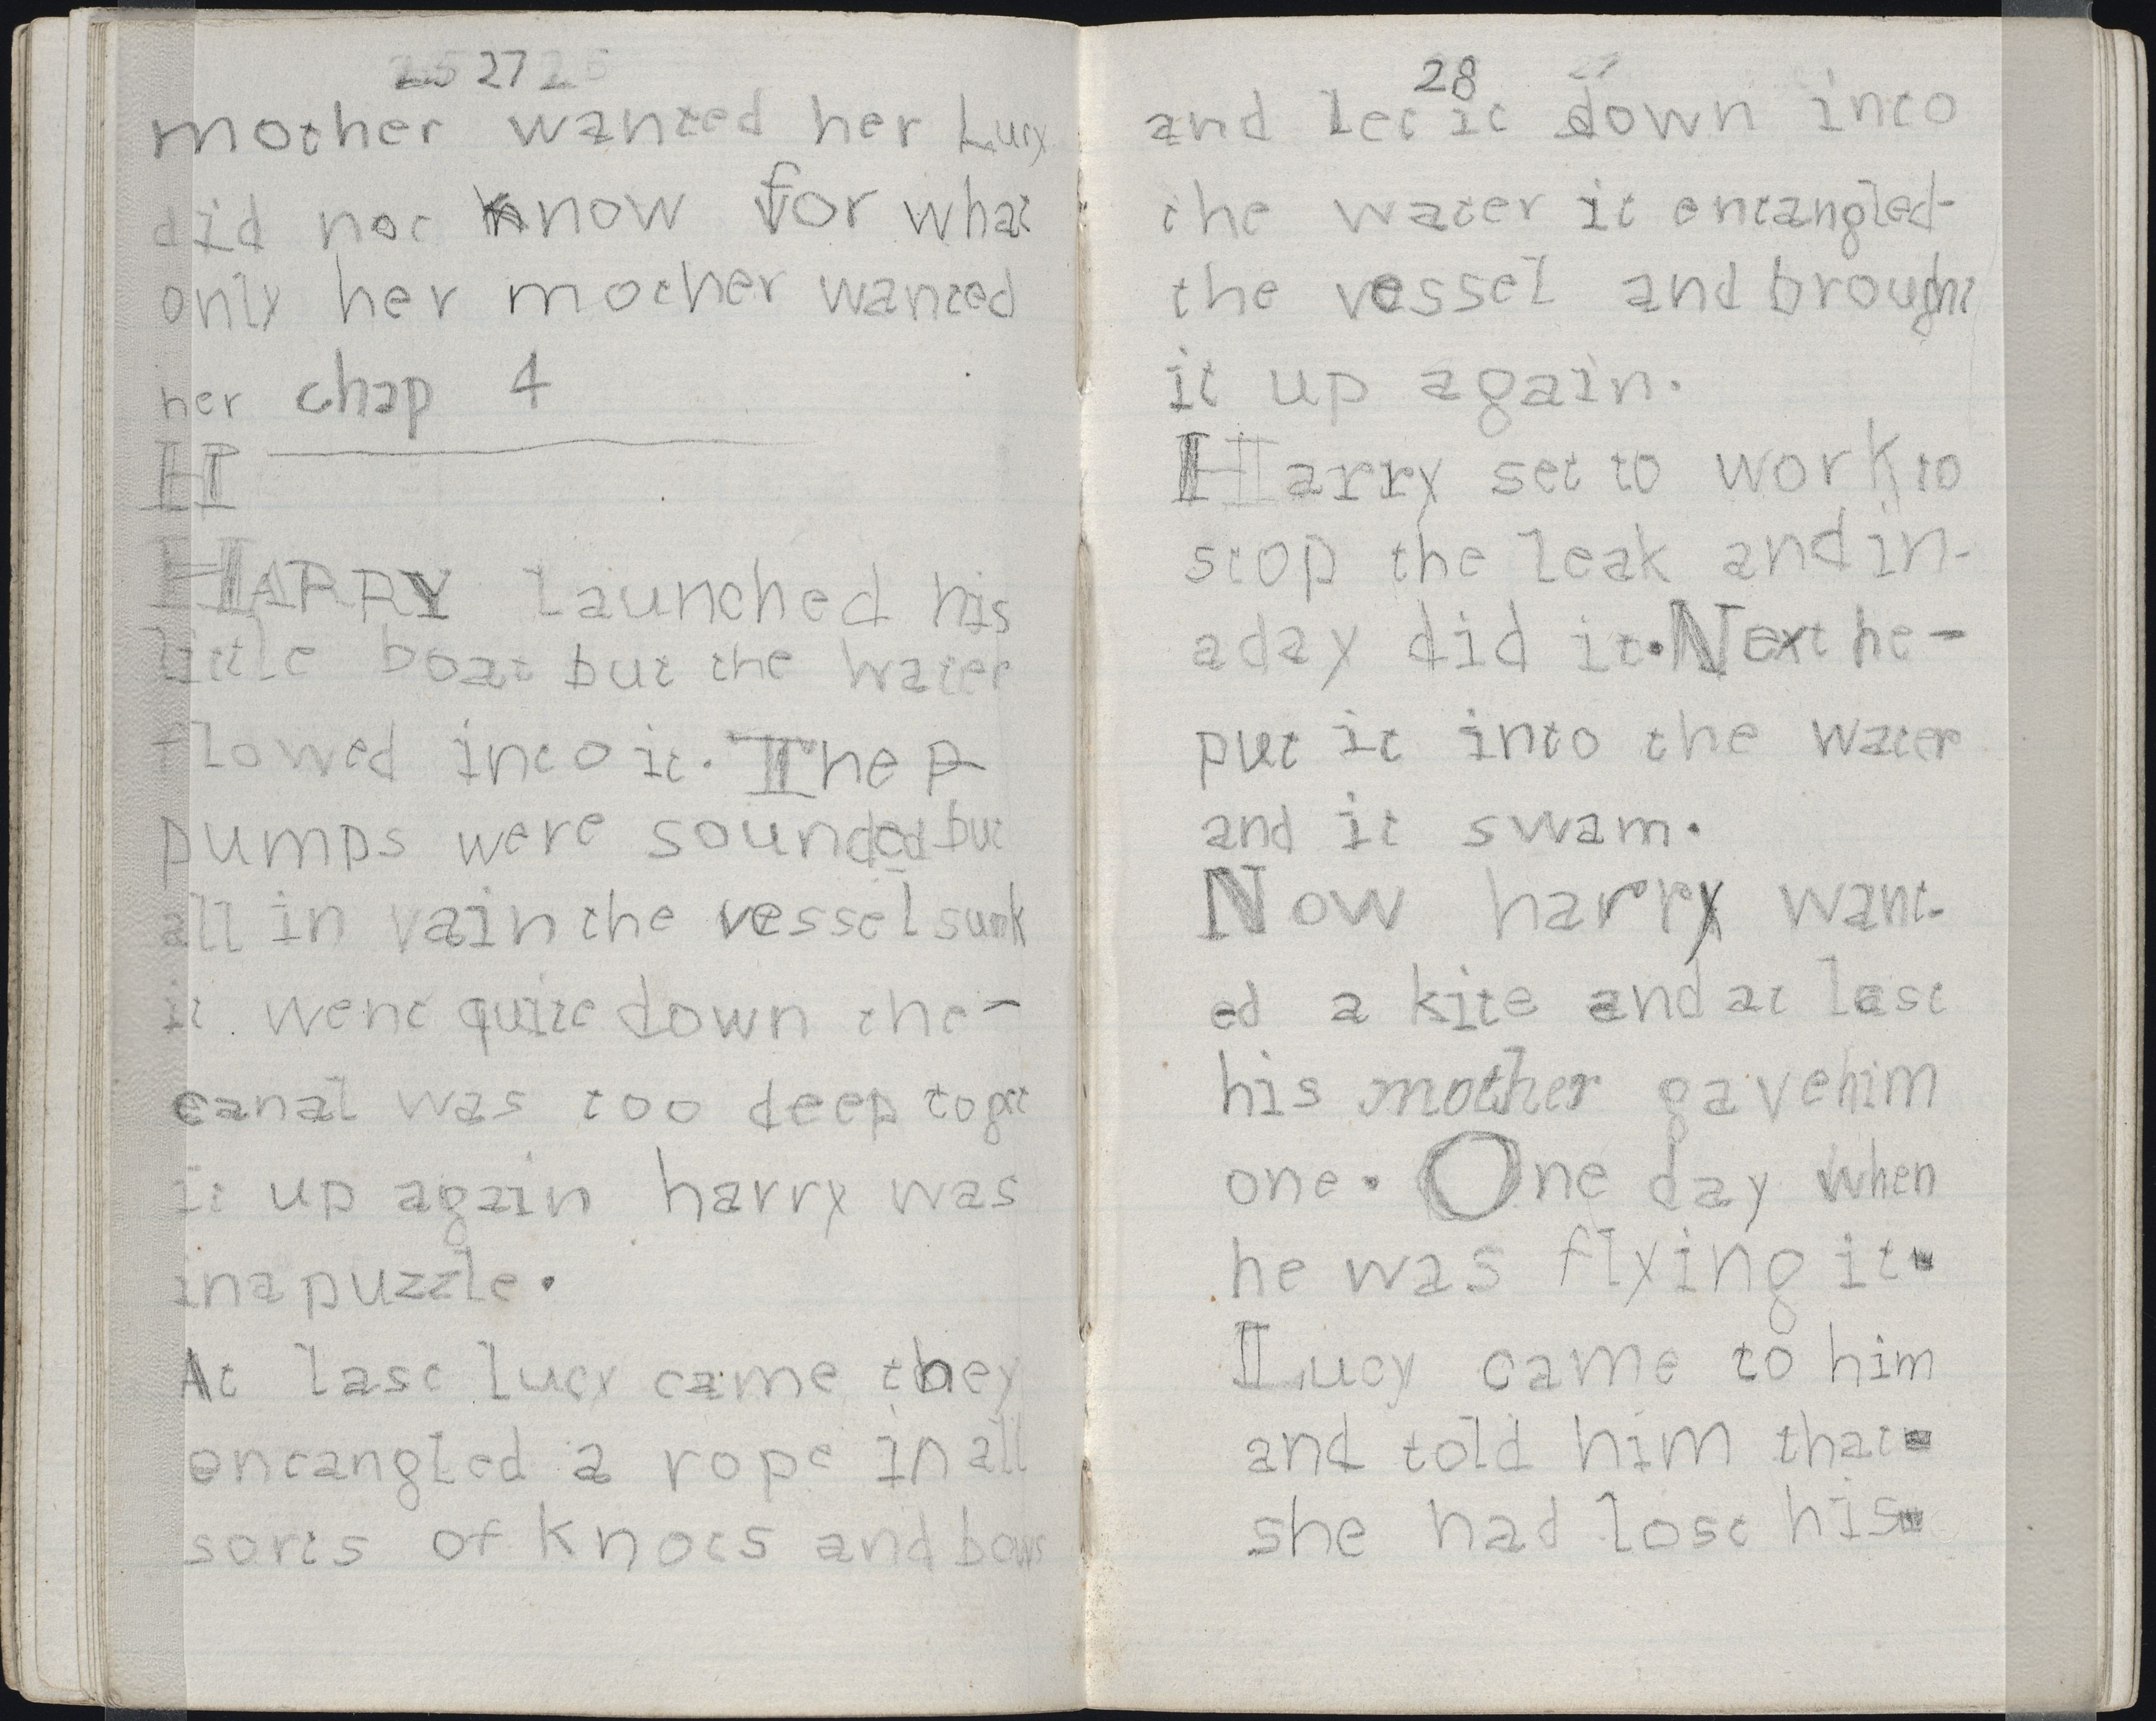 25 27 26
mother wanted her Lucy
did not know for what
only her mother wanted
her chap 4
H
HARRY launched his
little boat but the water
flowed into it. The p-
pumps were sounded but
all in vain the vessel sunk
it went quite down the-
canal was too deep to get
it up again harry was
in a puzzle.
At last lucy came they
entangled a rope in all
sorts of knots and bows
28 27
and let it down into
the water it entangled-
the vessel and brought
it up again.
Harry set to work to
stop the leak and in-
a day did it. Next he-
put it into the water
and it swam.
Now harry want-
ed a kite and at last
his mother gave him
one. One day when
he was flying it-
Lucy came to him
and told him that-
she had lost his-